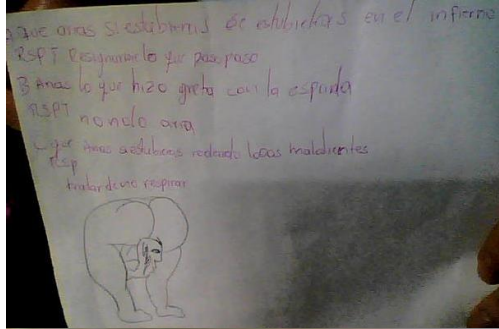 que arias si estubieras de estubieras en el infierno
RSPT Resignarme lo que paso paso
3 Arias lo que hizo greta con la espada
RSPT no no lo aria
que arias estubieras rodeado maldientes
RSP
tratar de no respirar